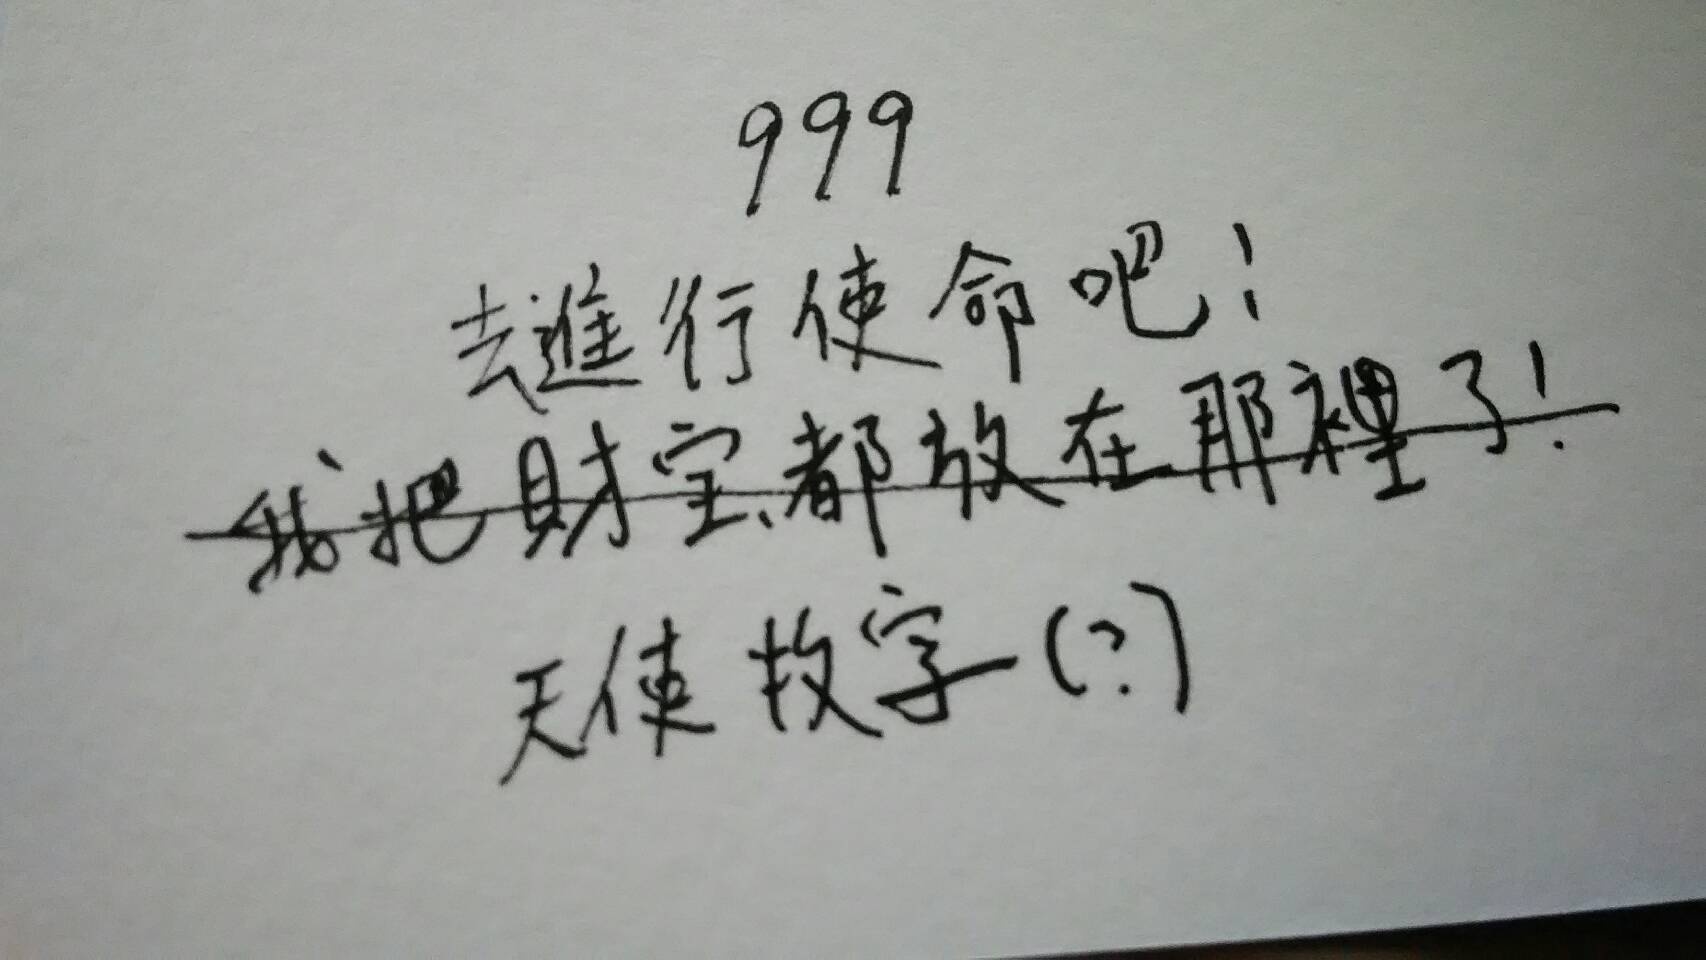 999
去進行使命吧！
我把財宝都放在那裡了！
天使牧字(?)